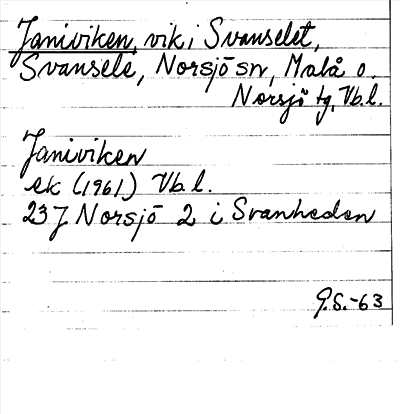 Janiviken, vik, i Svanselet,
Svansele, Norsjö sn, Malå o.
Norsjö tg, Vb.l.
Janiviken
ek (1961) Vb.l.
23J Norsjö 2 i Svanheden
G.S.-63